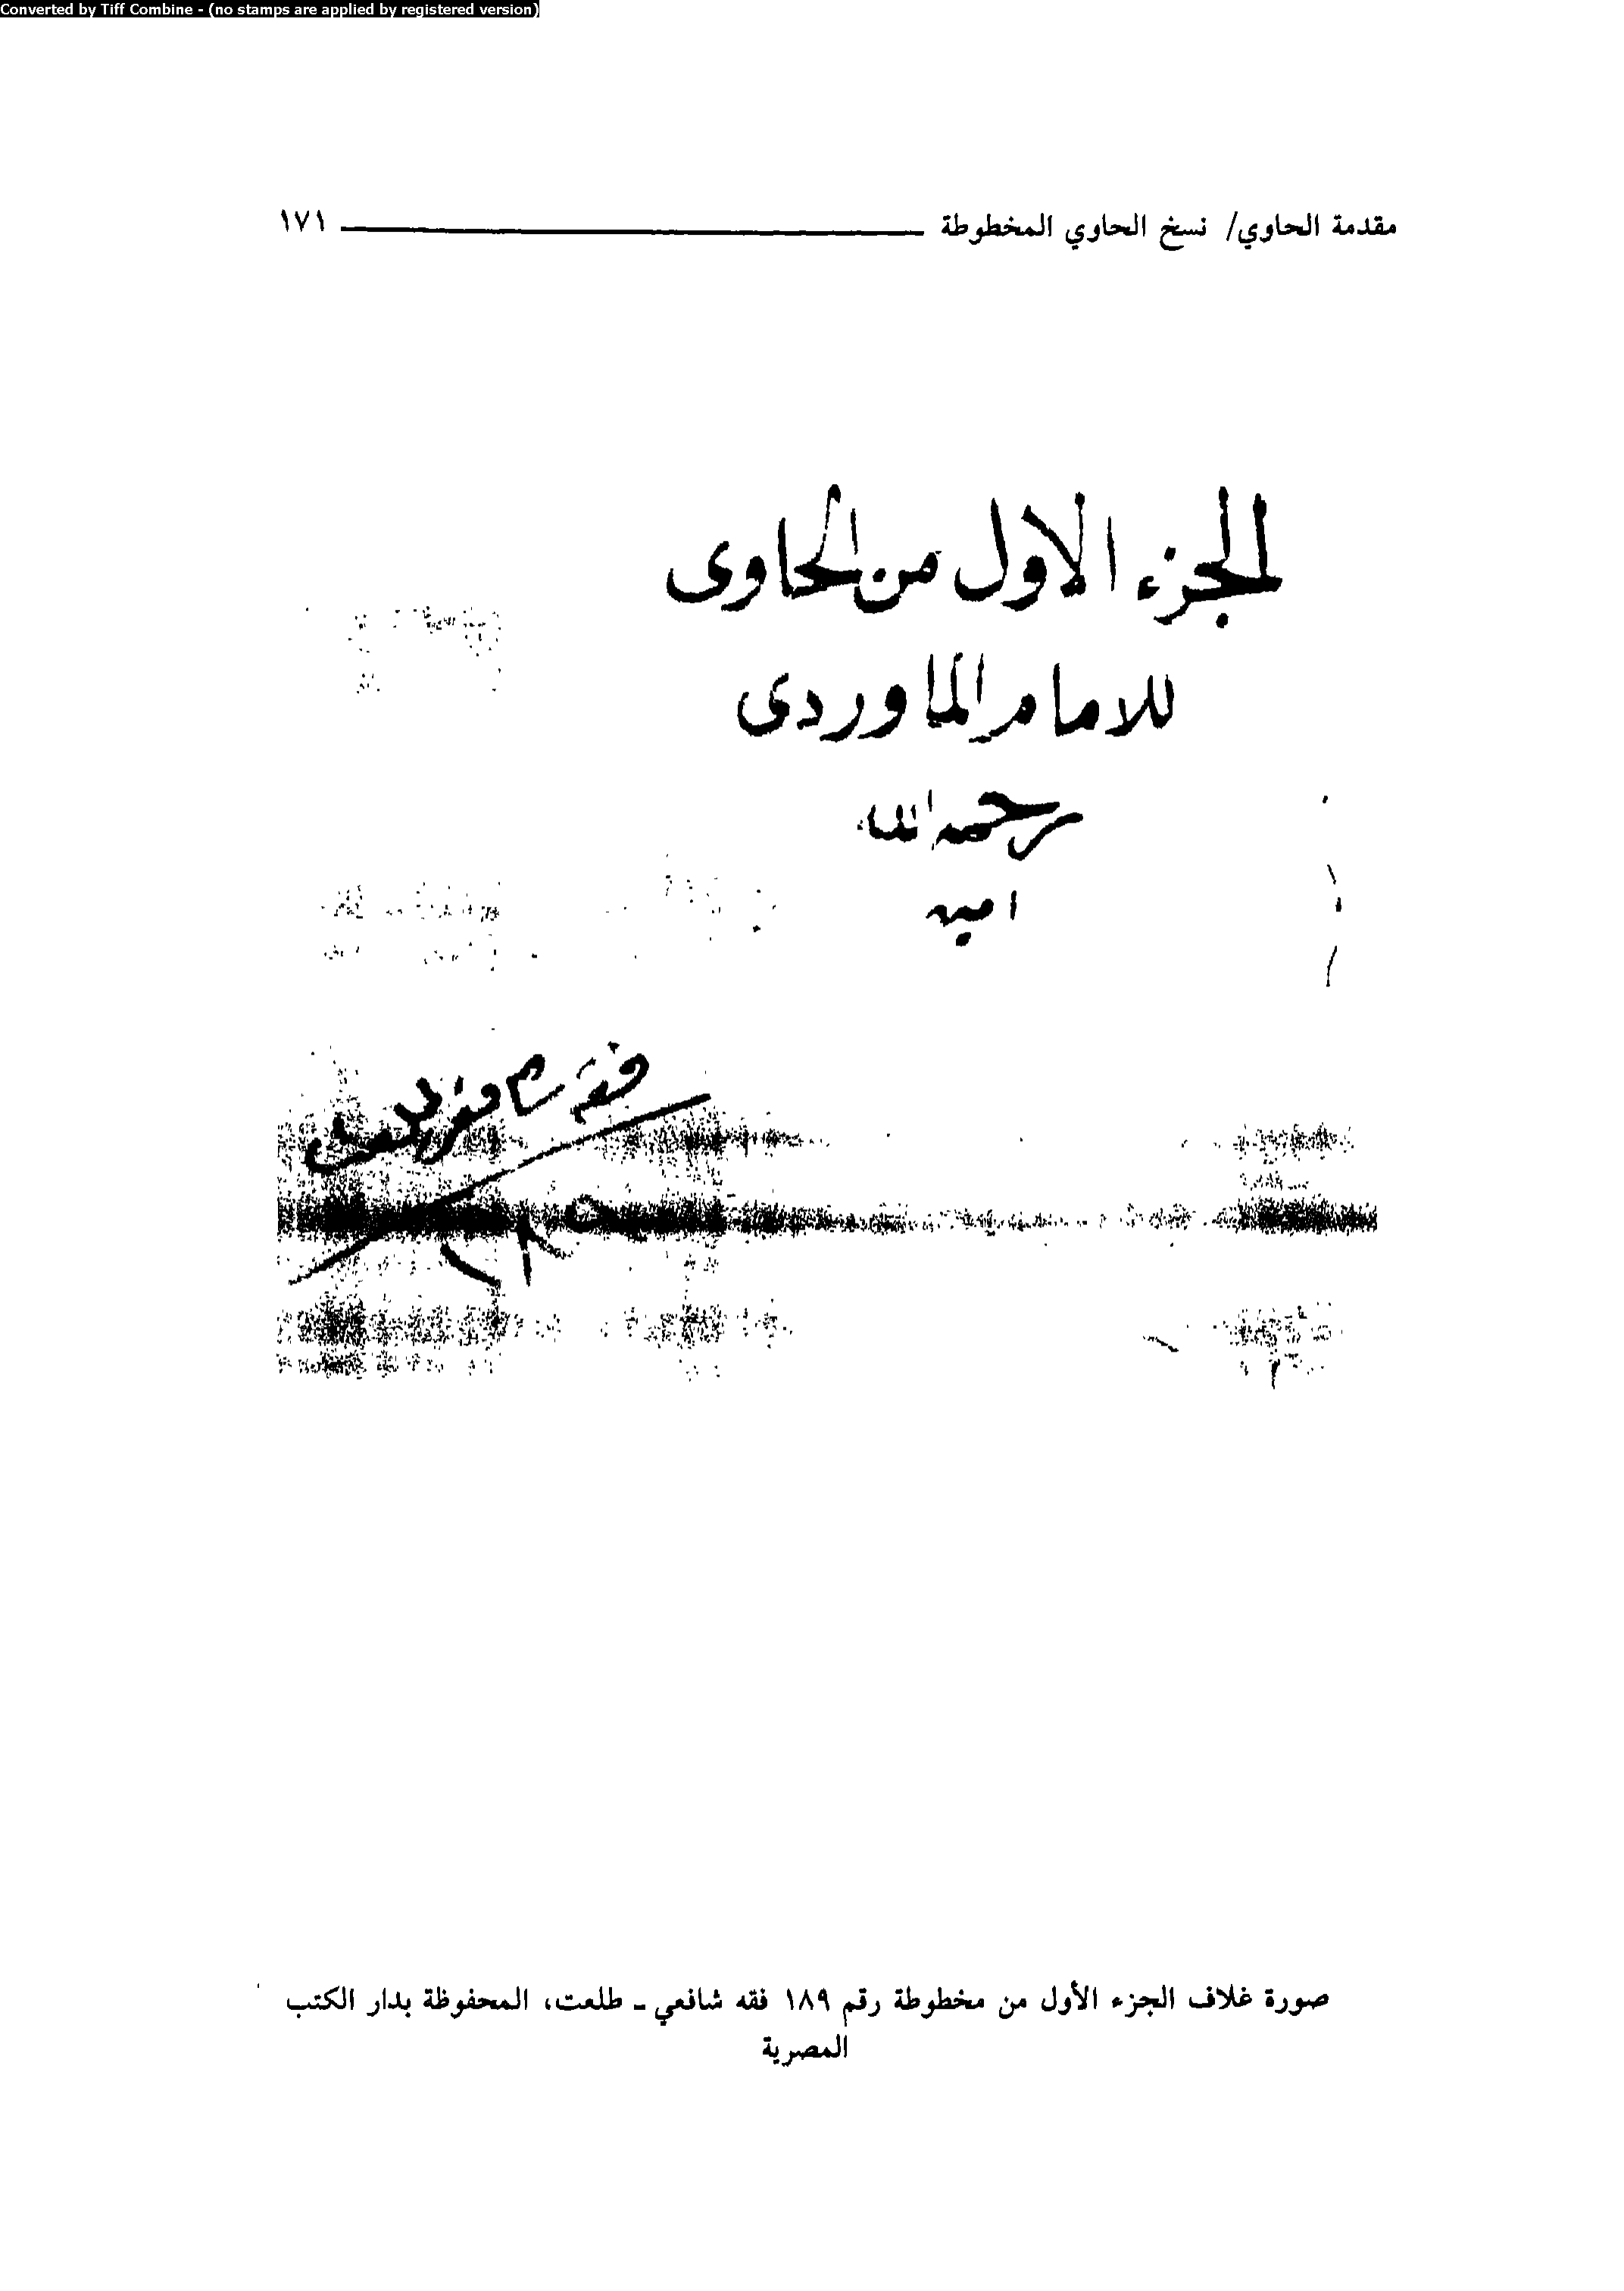 Converted by Tiff Combine - (no stamps are applied by registered version)
مقدمة الحاوي/ نسخ الحاوي المخطوطة ١٧١
الجزء الاول من الحاوى
للامام الماوردى
رحمه الله
امين
فقه شافعى
صورة غلاف الجزء الأول من مخطوطة رقم ١٨٩ فقه شافعي ـ طلعت، المحفوظة بدار الكتب
المصرية